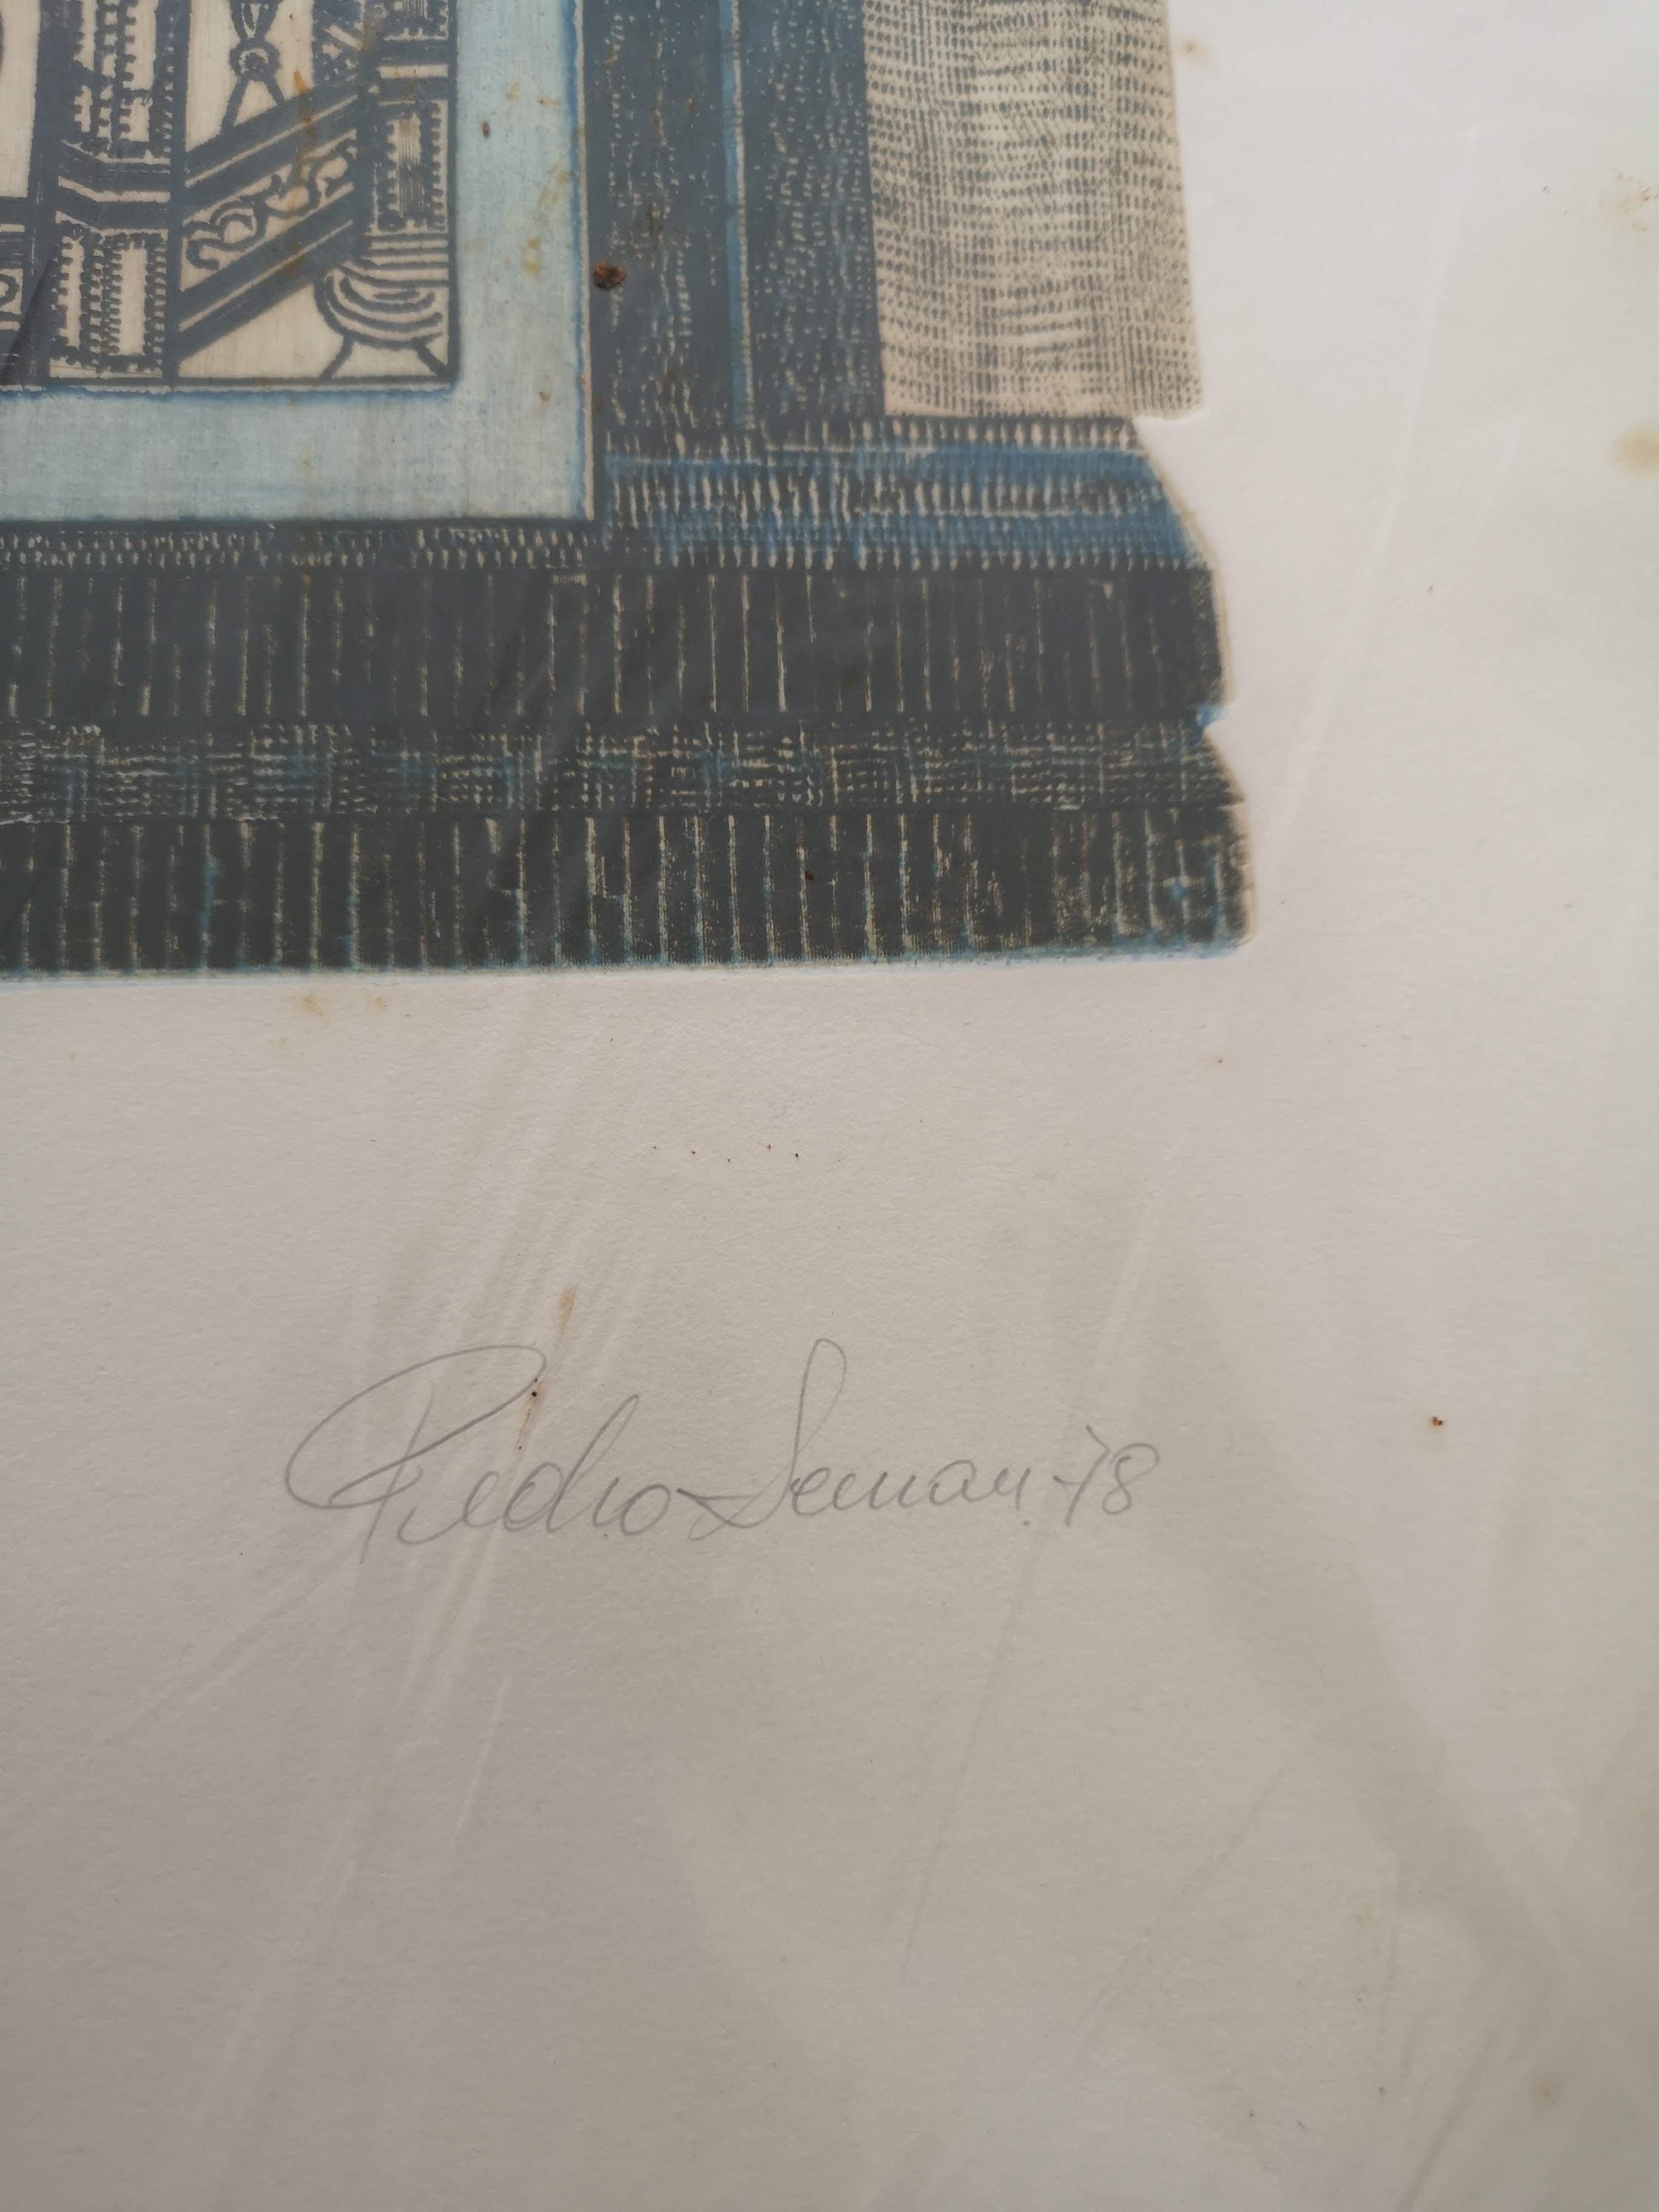 Pedro Seman. 78